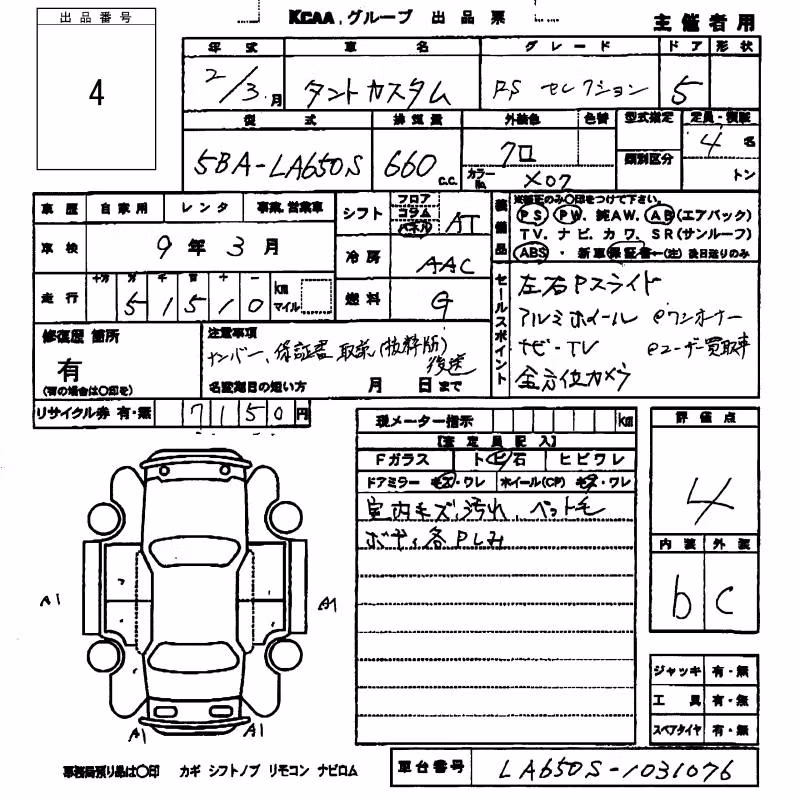 出品番号
4
KCAA.グループ 出品票
主催者用
年式 車名 グレード ドア 形状
2/3月 タントカスタム RS セレクション 5
型式 排気量 外装色 色替 型式指定 定員・積載
5BA-LA650S 660 c.c. クロ 類別区分 4名
カラーNo. X07 トン
車歴 自家用 レンタ 事業,営業車
シフト フロア コラム パネル AT
装備品
※修正のみ○印をつけて下さい。
PS. PW. 純AW. AB(エアバック)
TV. ナビ. カワ. SR(サンルーフ)
ABS ・ 新車保証書←(注)後日送りのみ
車検 9年3月
冷房 AAC
走行 十万 万 千 百 十 一 51510 km マイル
燃料 G
セールスポイント
左右Pスライド
アルミホイール @ワンオーナー
ナビ・TV @ユーザー買取車
全方位カメラ
修復歴 箇所
有
(有の場合は○印を)
注意事項
ナンバー、保証書 取説(抜粋版)後送
名変期日の短い方 月 日まで
リサイクル券 有・無 7150円
現メーター指示 km
【査定員記入】
Fガラス トビ石 ヒビワレ
ドアミラー キズ・ワレ ホイール(CP) キズ・ワレ
室内キズ、汚れ、ペット毛
ボディ各PLみ
評価点
4
内装 外装
b C
A1 A1
A1 A1
ジャッキ 有・無
工具 有・無
スペアタイヤ 有・無
事務局預り品は○印 カギ シフトノブ リモコン ナビロム
車台番号 LA650S-1031076